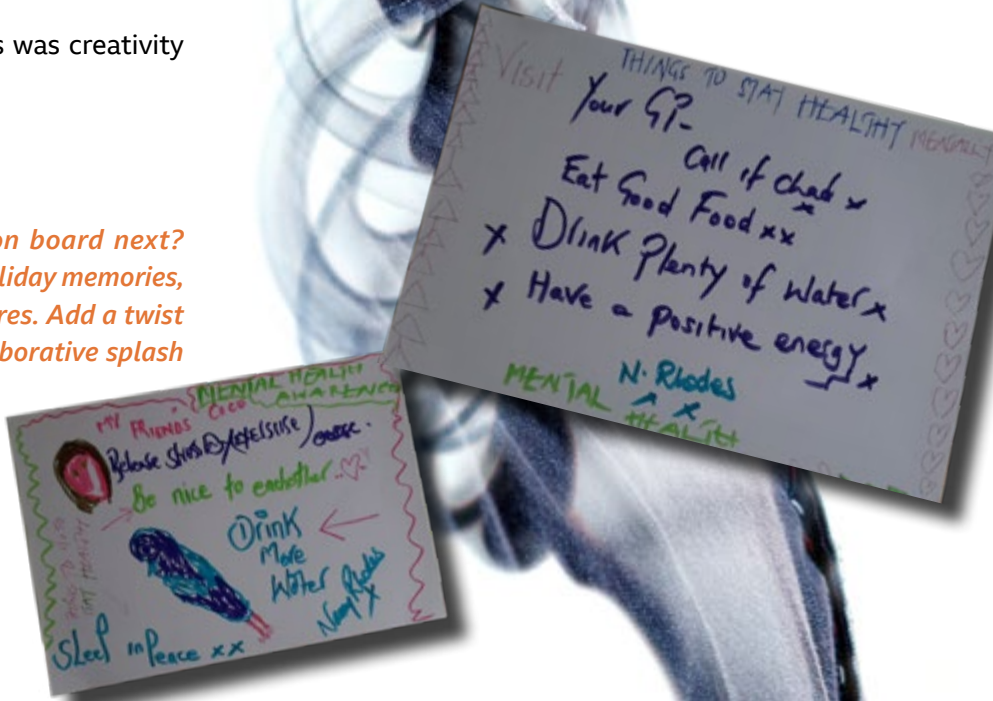 s was creativity
on board next?
liday memories,
res. Add a twist
borative splash
THINGS TO STAY HEALTHY MENTALLY
Visit
Your GP-
Call if chad x
Eat Good Food xx
x Drink Plenty of Water x
x Have a positive energy x
N. Rhodes
MENTAL
HEALTH
MENTAL HEALTH
AWARENESS
MY FRIENDS COCO
Release stress By (exercise)
Be nice to eachother
Drink
More
Water
Rhodes
THINGS TO HELP
STAY HEALTHY
Sleep in Peace xx